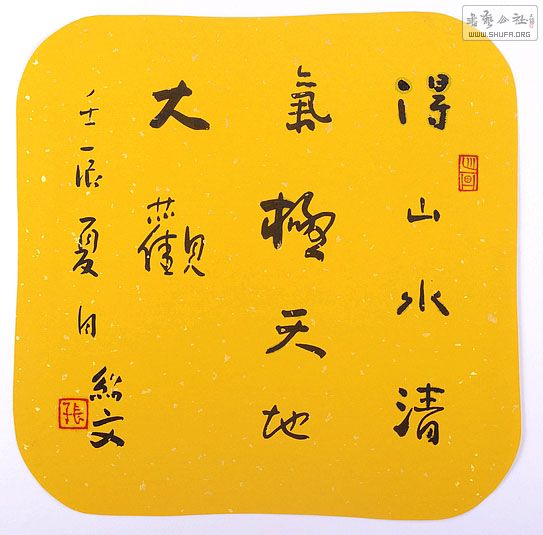 得山水清
氣極天地
大觀
壬辰夏月紹文
书艺公社
WWW.SHUFA.ORG